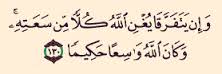 وَإِن يَتَفَرَّقَا يُغْنِ ٱللَّهُ كُلًّا مِّن سَعَتِهِۦۚ
وَكَانَ ٱللَّهُ وَٰسِعًا حَكِيمًا ١٣٠